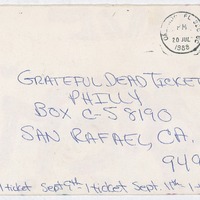 PM
20 JUL
1988
GRATEFUL DEAD TICKET
PHILLY
BOX C-S 8190
SAN RAFAEL, CA.
949
1 ticket Sept 9th 1 ticket Sept. 11th 1